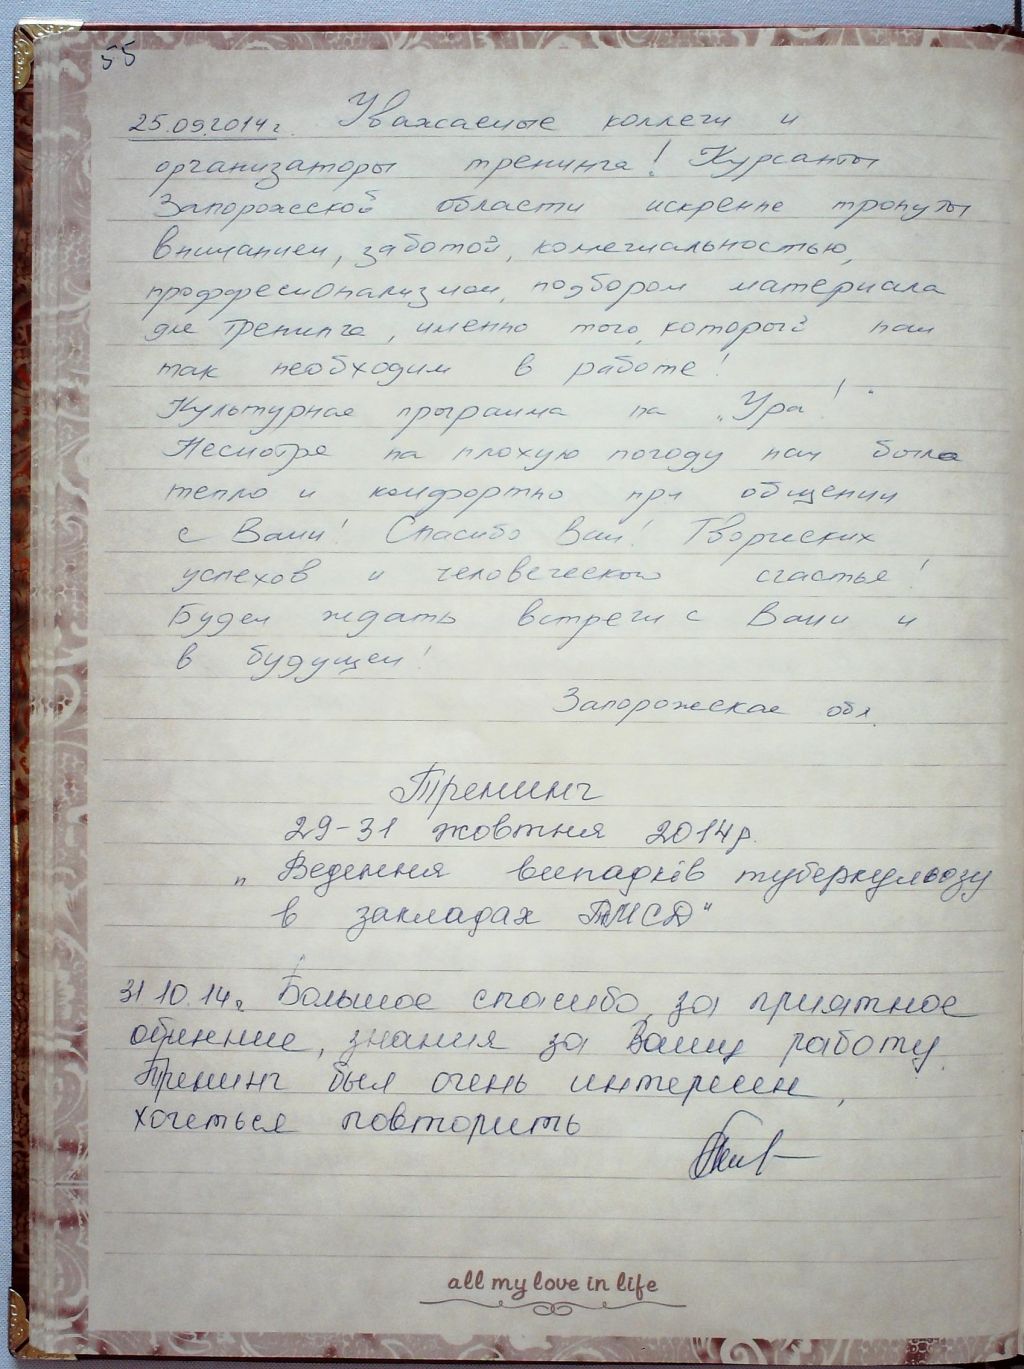 55
25.09.2014г. Уважаемые коллеги и
организаторы тренинга! Курсанты
Запорожской области искренне тронуты
вниманием, заботой, коллегиальностью,
проффесионализмом, подбором материала
для тренинга, именно того, который нам
так необходим в работе!
Культурная программа на „Ура!"
Несмотря на плохую погоду нам было
тепло и комфортно при общении
с Вами! Спасибо Вам! Творческих
успехов и человеческого счастья!
Будем ждать встречи с Вами и
в будущем!
Запорожская обл.
Тренинг
29-31 жовтня 2014р.
„Ведення випадків туберкульозу
в закладах ПМСД"
31 10.14г. Большое спасибо за приятное
общение, знания за Вашу работу.
Тренинг был очень интересен,
хочеться повторить
all my love in life